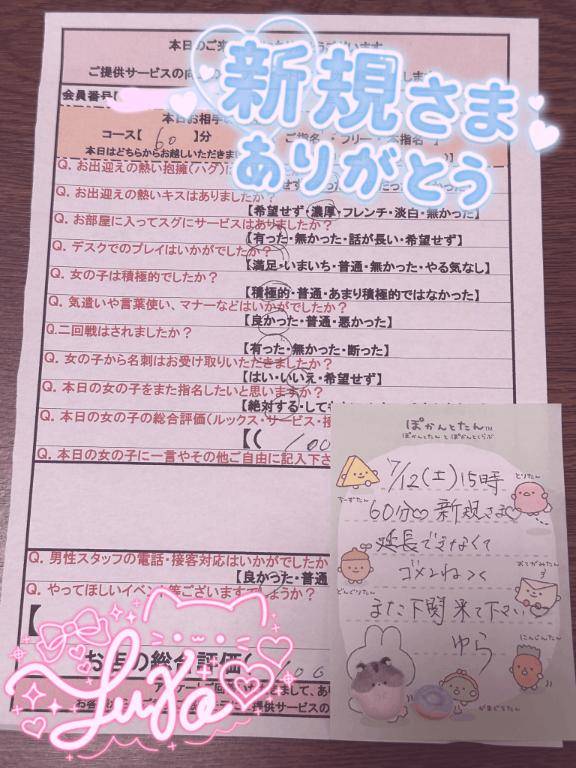 本日のご来
新規さま
ありがとう
ご提供サービスの向
会員番号【
本日お相手
コース【 60 】分
ご指名【フリー・本指名】
本日はどちらからお越しいただきま
Q. お出迎えの熱い抱擁(ハグ)に
Q. お出迎えの熱いキスはありましたか?
【希望せず・濃厚・フレンチ・淡白・無かった】
Q. お部屋に入ってスグにサービスはありましたか?
【有った・無かった・話が長い・希望せず】
Q. デスクでのプレイはいかがでしたか?
【満足・いまいち・普通・無かった・やる気なし】
Q. 女の子は積極的でしたか?
【積極的・普通・あまり積極的ではなかった】
Q. 気遣いや言葉使い、マナーなどはいかがでしたか?
【良かった・普通・悪かった】
Q.二回戦はされましたか?
【有った・無かった・断った】
Q. 女の子から名刺はお受け取りいただきましたか?
【はい・いいえ・希望せず】
Q. 本日の女の子をまた指名したいと思いますか?
【絶対する・して
Q. 本日の女の子の総合評価(ルックス・サービス・接
【( 100
Q. 本日の女の子に一言やその他ご自由に記入下さ
Q. 男性スタッフの電話・接客対応はいかがでしたか
【良かった・普通
Q. やってほしいイベント等ございますでしょうか?
【
お店の総合評価【 100
Yura
ぽかんとたん™
ぽかんとたんとぽかんとくらぶ
ちーずたん
とりたん
7/12(土)15時
60分♡新規さま♡
延長できなくて
ゴメンねつく
どんぐりたん
おてがみたん
また下関来て下さい♡
ゆら
にんじんたん
がまぐちたん